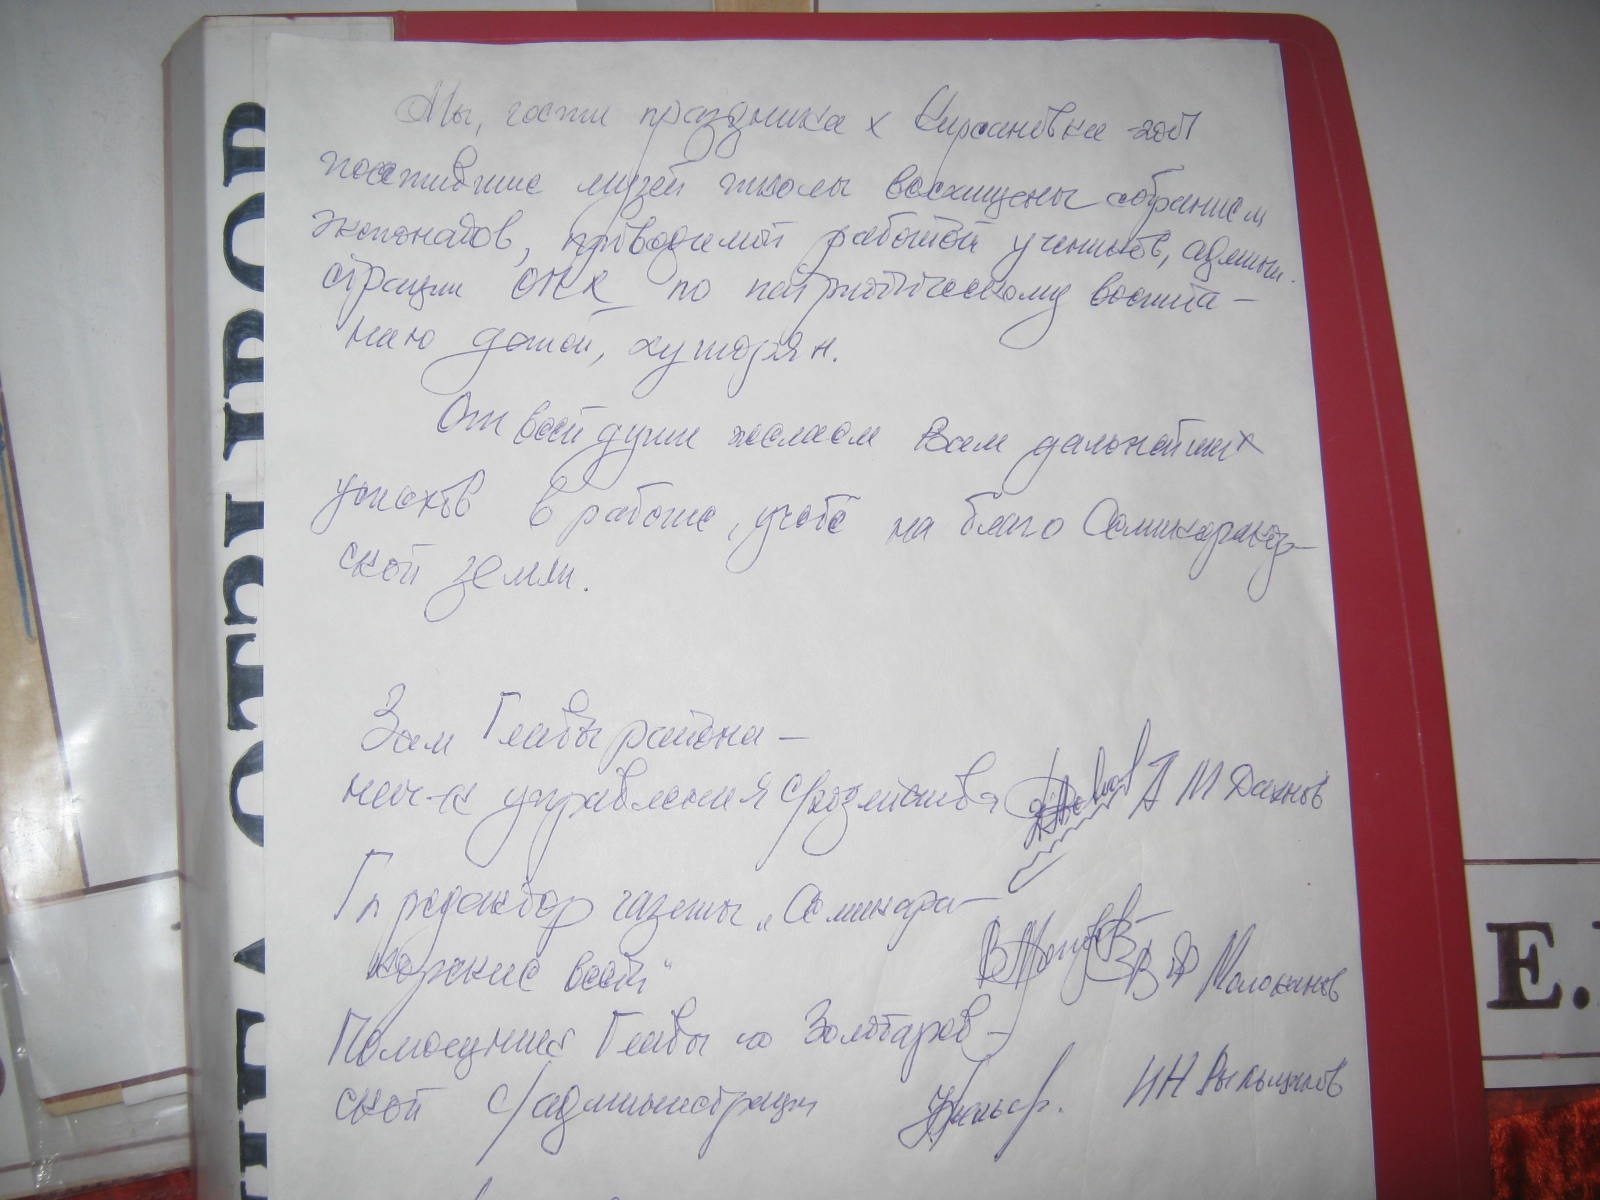 Мы, гости праздника х Кирсановка
посетившие музей школы восхищены собранием
экспонатов, проводимой работой учеников, админи-
страции по патриотическому воспита-
нию детей, хуторян.
От всей души желаем Вам дальнейших
успехов в работе, учебе на благо Семикаракор-
ской земли.
Зам Главы района -
нач-к управления с/хозяйства А М Дахнов
Гл редактор газеты „Семикара-
корские вести" В Ф Молоканов
Помощник Главы Золотарев-
ской с/администрации И Н
КНИГА ОТЗЫВОВ
Е.